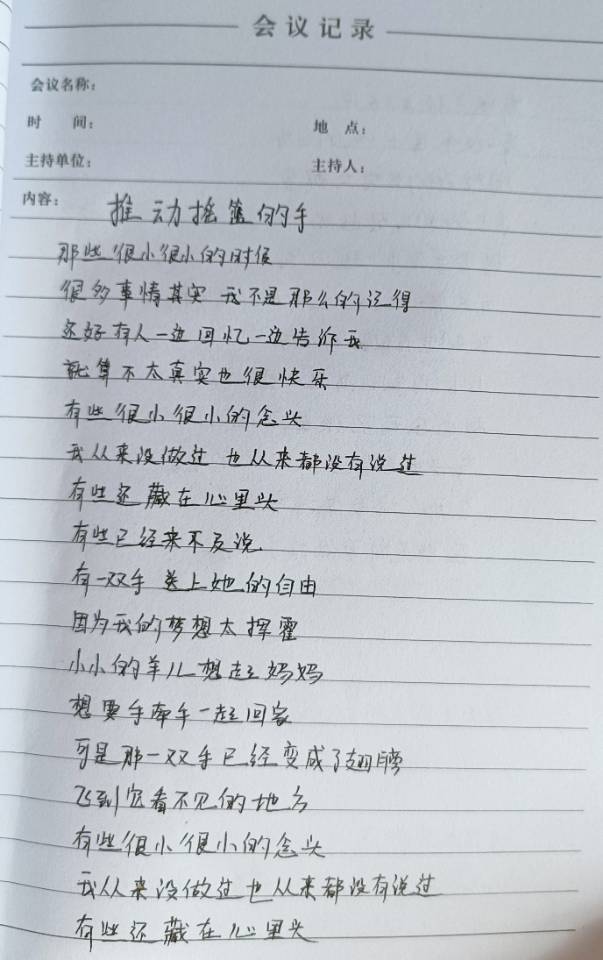 会议记录
会议名称：
时　间：
地　点：
主持单位：
主持人：
内容：
推动摇篮的手
那些很小很小的时候
很多事情其实 我不是那么的记得
还好有人一边回忆一边告诉我
就算不太真实也很快乐
有些很小很小的念头
我从来没做过 也从来都没有说过
有些还藏在心里头
有些已经来不及说
有一双手 送上她的自由
因为我的梦想太挥霍
小小的羊儿想起妈妈
想要手牵手一起回家
可是那一双手已经变成了翅膀
飞到它看不见的地方
有些很小很小的念头
我从来没做过也从来都没有说过
有些还藏在心里头